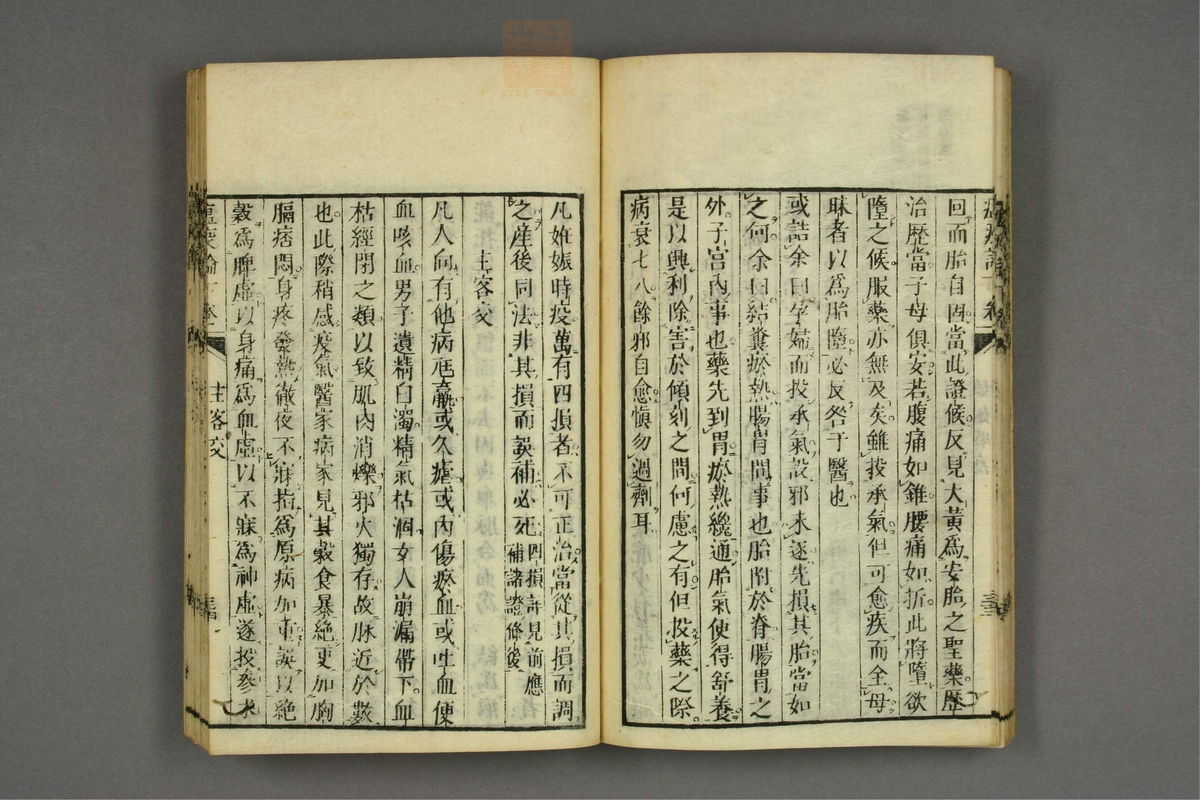 回而胎自固當此證候反見大黃爲安胎之聖藥歷
治歷當子母俱安若腹痛如錐腰痛如折此將墮欲
墮之候服藥亦無及矣雖投承氣但可愈疾而全母
昧者以爲胎墮必反咎于醫也
或詰余曰孕婦而投承氣設邪未逐先損其胎當如
之何余曰結糞瘀熱腸胃間事也胎附於脊腸胃之
外子宮內事也藥先到胃瘀熱纔通胎氣便得舒養
是以興利除害於傾刻之間何慮之有但投藥之際
病衰七八餘邪自愈愼勿過劑耳
凡妊娠時疫萬有四損者不可正治當從其損而調
之產後同法非其損而誤補必死四損詳見前應補諸證條後
主客交
凡人向有他病尪羸或久瘧或內傷瘀血或吐血便
血咳血男子遺精白濁精氣枯涸女人崩漏帶下血
枯經閉之類以致肌肉消爍邪火獨存故脉近於數
也此際稍感疫氣醫家病家見其穀食暴絶更加胸
膈痞悶身疼發熱徹夜不寐指爲原病加重誤以絶
穀爲脾虛以身痛爲血虛以不寐爲神虛遂投參朮
主客交